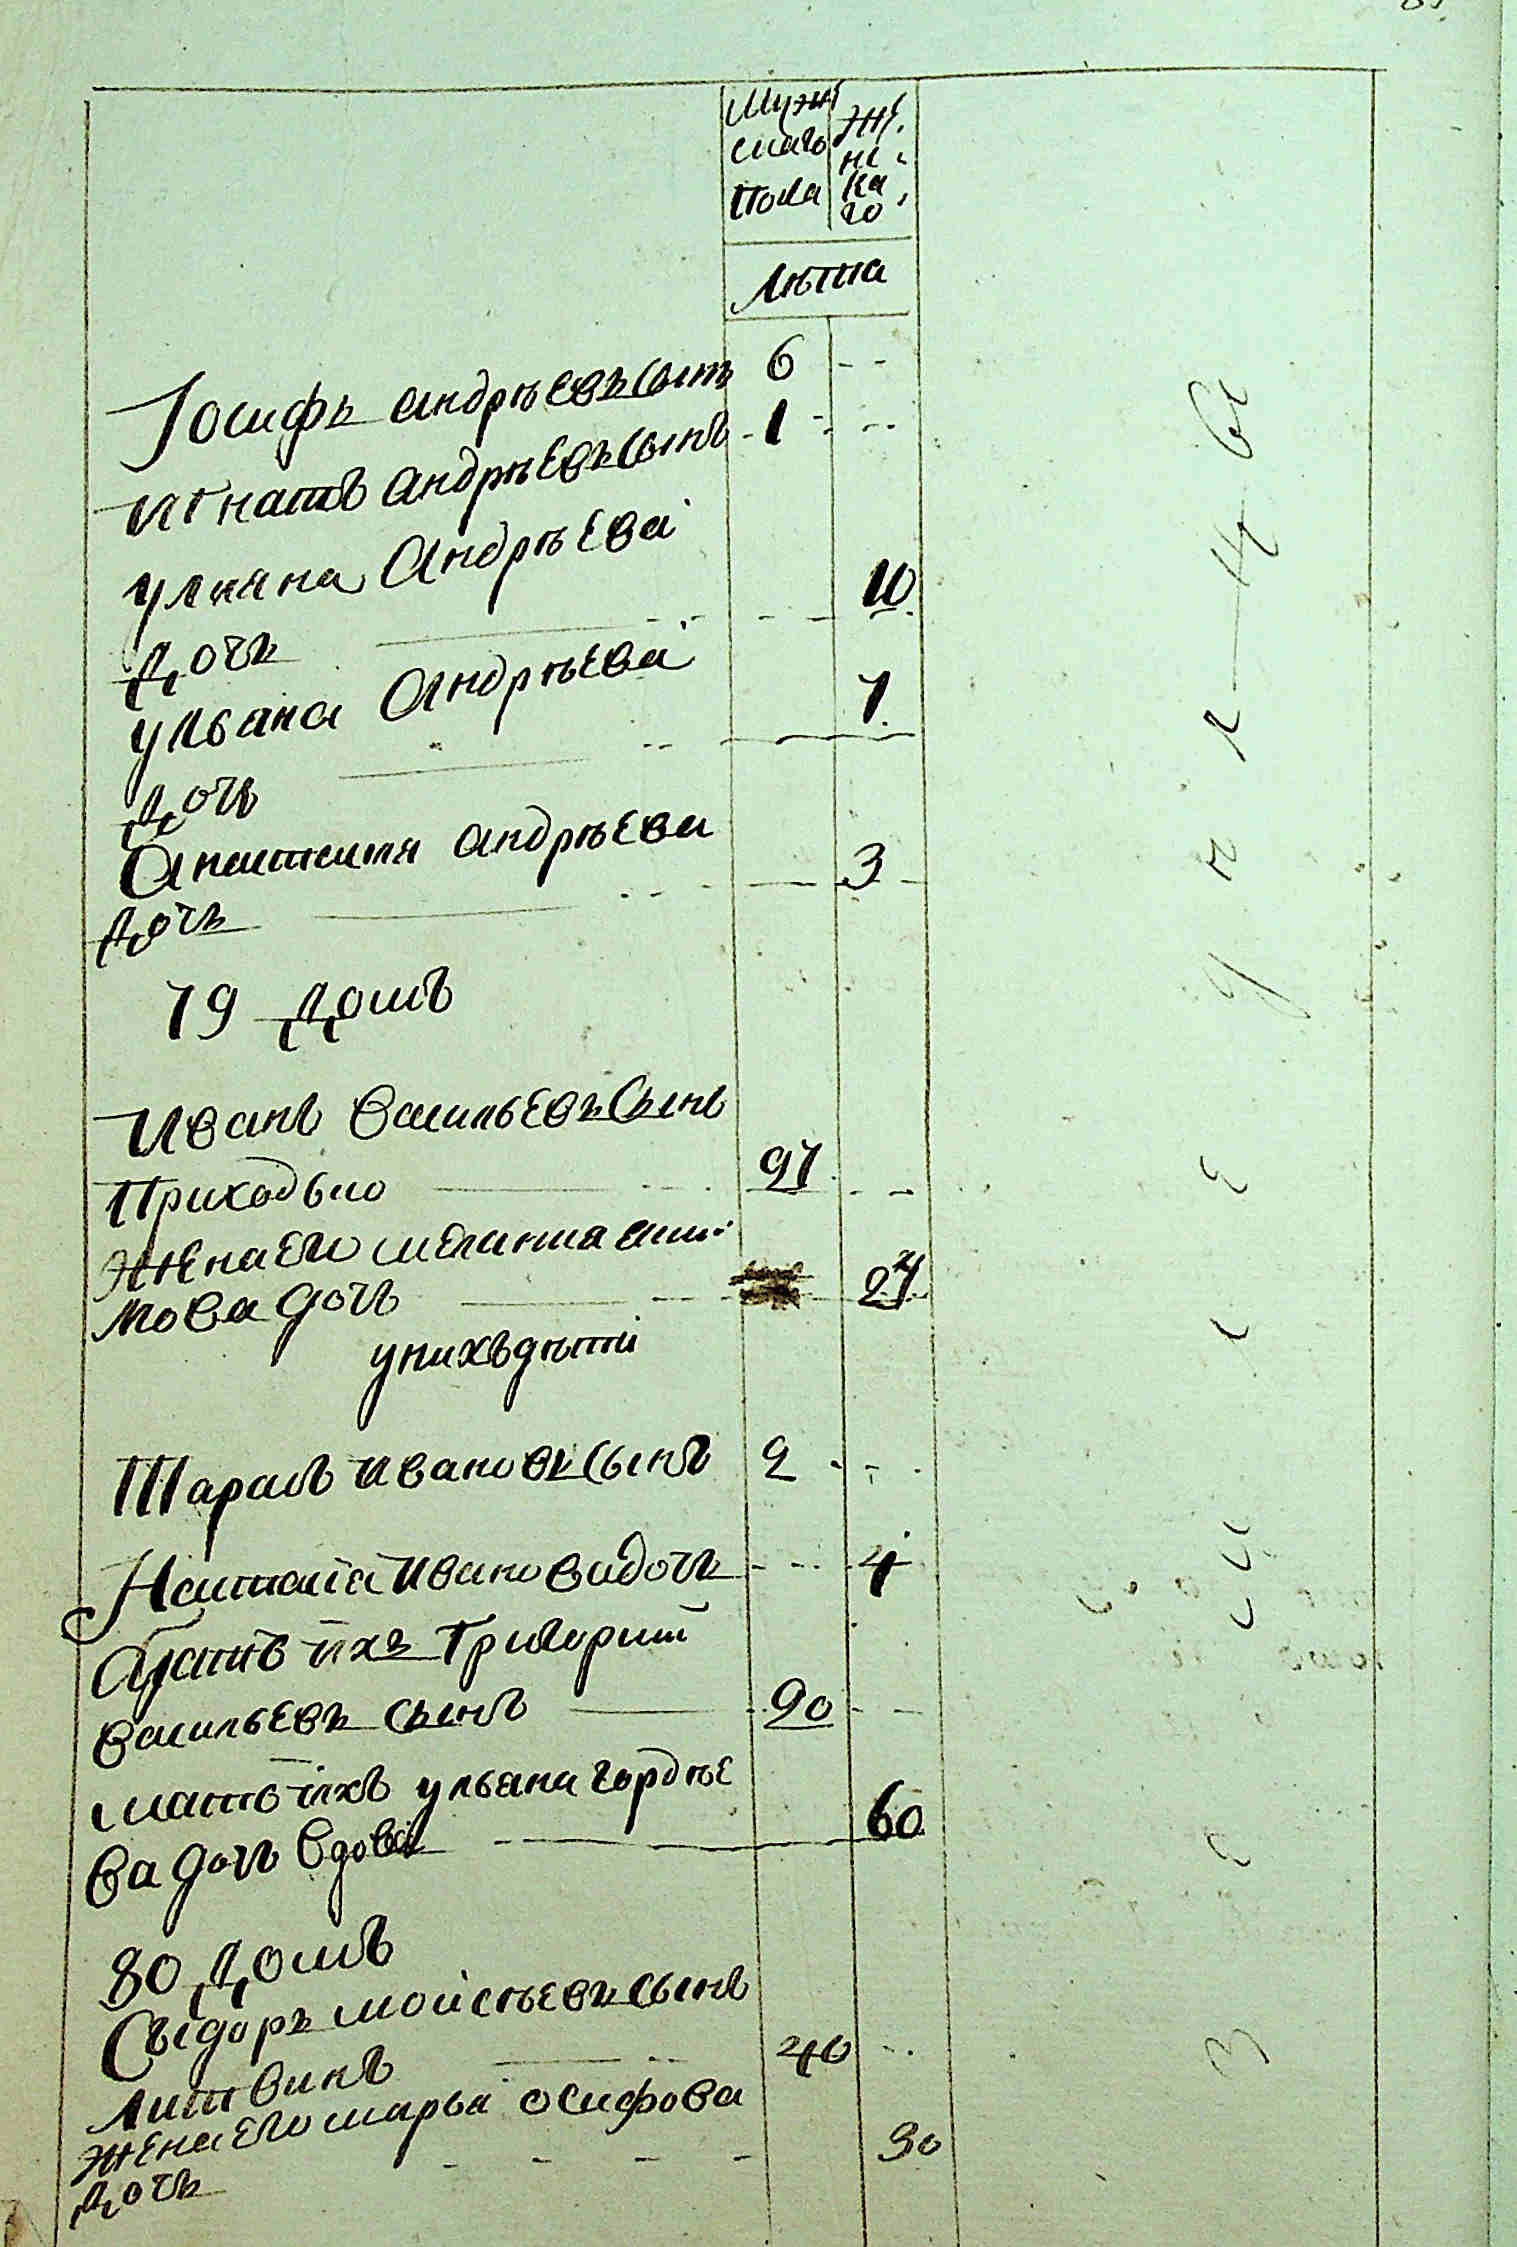 Мужескаго пола
Женскаго
Лѣта
Іосифъ Андрѣевъ сынъ 6
Игнатъ Андрѣевъ сынъ 1
Улияна Андрѣева
дочь 10
Ульяна Андрѣева
дочь 7
Анастасия Андрѣева
дочь 3
79 Домъ
Иванъ Васильевъ сынъ
Приходько 27
Жена его Мелания
дочь
у нихъ дѣти
Тарасъ Ивановъ сынъ 2
Наталiя Иванова дочь 4
Братъ ихъ Григорий
Васильевъ сынъ 20
Мать ихъ Ульяна Гордѣе
ва дочь вдова 60
80 Домъ
Сыдоръ Мойсѣевъ сынъ
Литвинъ 40
Жена его Марья Осифова
дочь 30